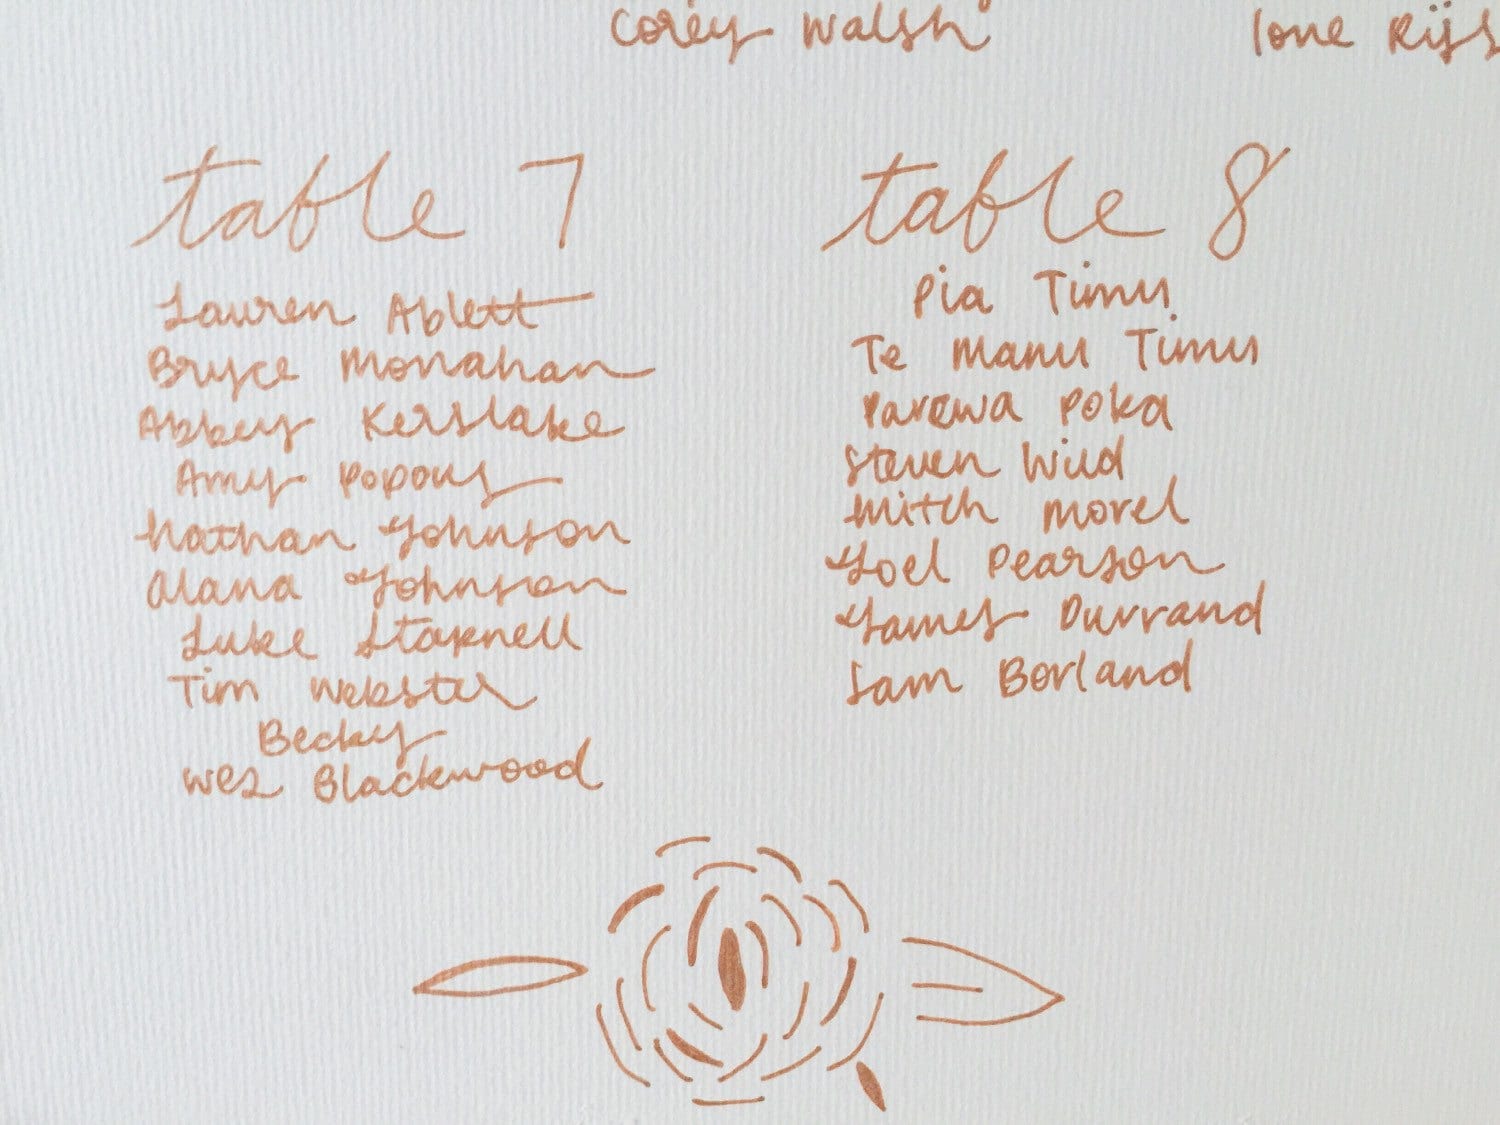 Corey Walsh
Ione
table 7
Lauren Ablett
Bryce Monahan
Abbey Kerslake
Amy Popovs
Nathan Johnson
Alana Johnson
Luke Starnell
Tim Webster
Becky
Wes Blackwood
table 8
Pia Timu
Te Manu Timu
Parewa Poka
Steven Wild
Mitch Morel
Joel Pearson
James Durrand
Sam Borland